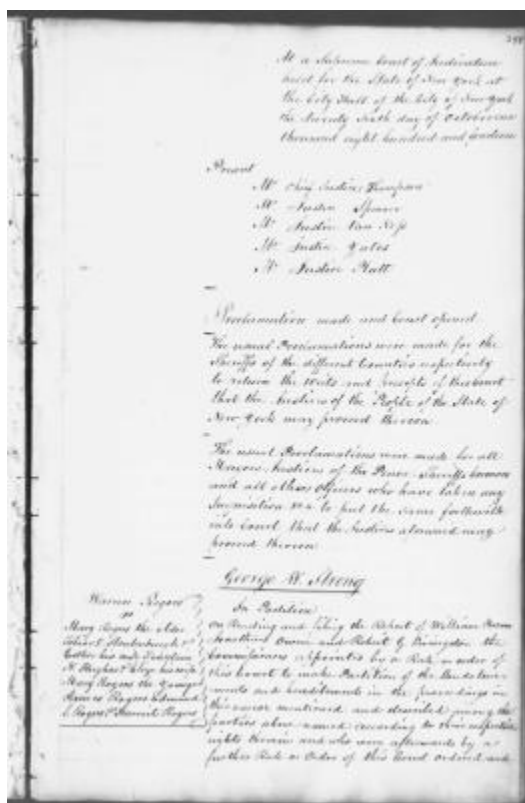 At a Supreme Court of Judicature
held for the State of New York at
the City Hall of the City of New York
the twenty sixth day of October one
thousand eight hundred and fourteen
Present
Mr Chief Justice Thompson
Mr Justice Spencer
Mr Justice Van Ness
Mr Justice Yates
Mr Justice Platt
Proclamation made and Court opened
The usual Proclamations were made for the
Sheriffs of the different Counties respectively
to return the Writs and precepts of this Court
that the Justices of the People of the State of
New York may proceed thereon
The usual Proclamations were made for all
Mayors, Justices of the Peace, Sheriffs
and all other Officers who have taken any
to put the same forthwith
into Court that the Justices may
proceed thereon
George W. Strong
Warren Rogers
vs
Mary Rogers the elder
his
Hughes his wife
Mary Rogers the younger
James Rogers Edmund
Rogers Rogers
In Partition
On Reading and filing the Report of William
and Robert Livingston the
Commissioners appointed by a Rule or order of
this Court to make Partition of the
and hereditaments in the proceedings in
this cause mentioned and described among the
parties above named according to their respective
rights therein and who were afterwards by a
further Rule or Order of this Court ordered and